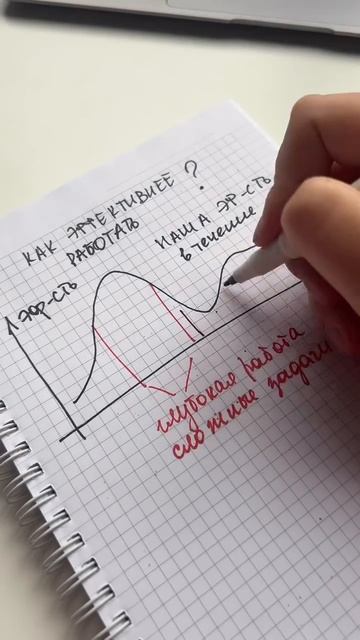 КАК ЭФФЕКТИВНЕЕ ?
РАБОТАТЬ
НАША ЭФ-СТЬ
в течение
ЭФФ-СТЬ
глубокая работа
сложные задачи